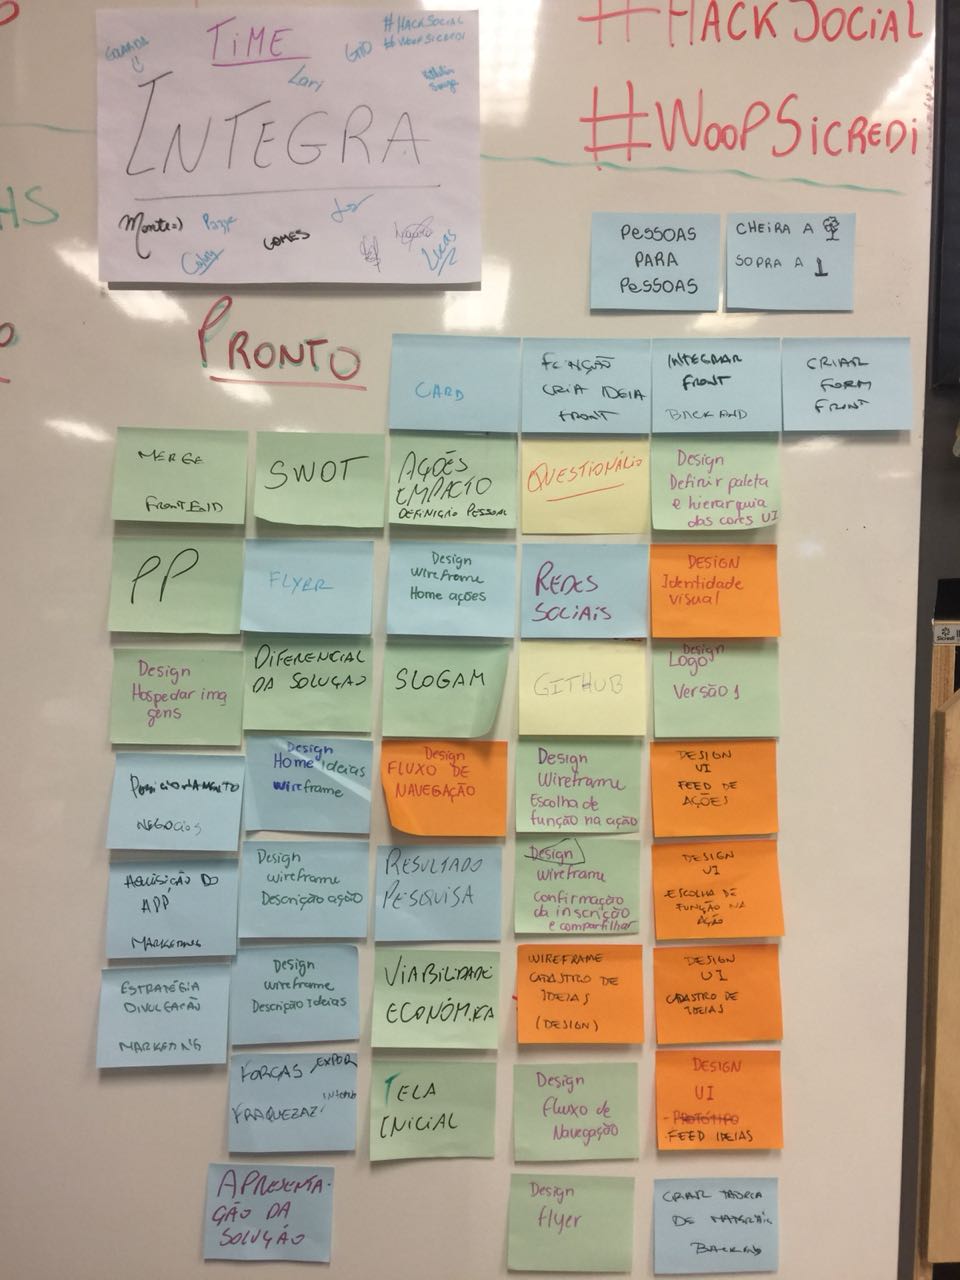 TIME
#HACKSOCIAL
#WOOPSICREDI
Lari
INTEGRA
GOMES
Lucas
#HACKSOCIAL
#WOOPSICREDI
HS
PESSOAS
PARA
PESSOAS
CHEIRA A
SOPRA A
PRONTO
CARD
FUNÇÃO
CRIA IDEIA
FRONT
INTEGRAR
FRONT
BACKAND
CRIAR
FORM
FRONT
MERGE
FRONTEND
SWOT
AÇÕES
IMPACTO
DEFINIÇÃO PESSOAL
QUESTIONÁLIO
Design
Definir paleta
e hierarquia
das cores UI
PP
FLYER
Design
Wireframe
Home ações
REDES
SOCIAIS
DESIGN
Identidade
visual
Design
Hospedar ima
gens
DIFERENCIAL
DA SOLUÇÃO
SLOGAM
GITHUB
Design
Logo
Versão 1
POSICIONAMENTO
NEGÓCIOS
Design
Home Ideias
Wireframe
Design
FLUXO DE
NAVEGAÇÃO
Design
Wireframe
Escolha de
função na ação
DESIGN
UI
FEED DE
AÇÕES
AQUISIÇÃO DO
APP
MARKETING
Design
Wireframe
Descrição ação
RESULTADO
PESQUISA
Design
Wireframe
Confirmação
da inscrição
e compartilhar
DESIGN
UI
ESCOLHA DE
FUNÇÃO NA
AÇÃO
ESTRATÉGIA
DIVULGAÇÃO
MARKETING
Design
Wireframe
Descrição Ideias
VIABILIDADE
ECONÔMICA
WIREFRAME
CADASTRO DE
IDEIAS
(DESIGN)
DESIGN
UI
CADASTRO DE
IDEIAS
FORÇAS
FRAQUEZAS
TELA
INICIAL
Design
Fluxo de
Navegação
DESIGN
UI
- PROTÓTIPO
FEED IDEIAS
APRESENTA-
ÇÃO DA
SOLUÇÃO
Design
flyer
CRIAR
DE
BACKEND
Sicredi